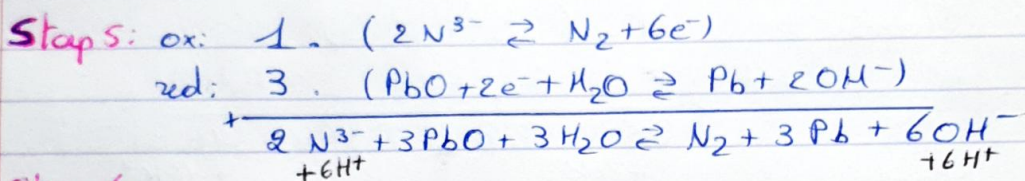 Stap 5: ox: 1. (2 N³⁻ ⇄ N₂ + 6e⁻)
red: 3. (PbO + 2e⁻ + H₂O ⇄ Pb + 2OH⁻)
+
2 N³⁻ + 3PbO + 3 H₂O ⇄ N₂ + 3 Pb + 6OH⁻
+6H⁺ +6H⁺